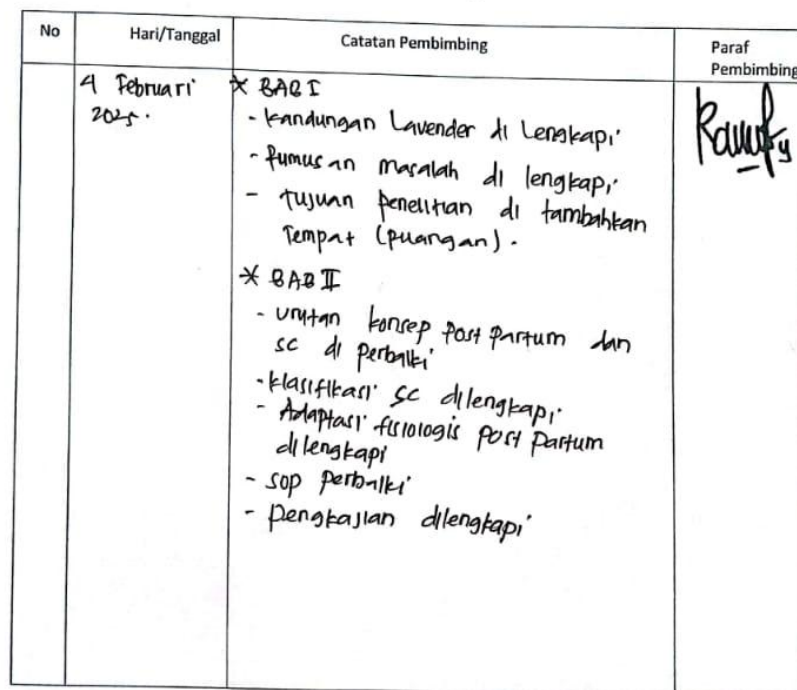 No Hari/Tanggal Catatan Pembimbing Paraf Pembimbing
4 Februari
2025.
* BAB I
- Kandungan Lavender di Lengkapi
- Rumusan masalah di lengkapi
- Tujuan penelitian di tambahkan
Tempat (Ruangan).
* BAB II
- Urutan konsep Post Partum dan
SC di perbaiki
- Klasifikasi SC dilengkapi
- Adaptasi fisiologis Post Partum
dilengkapi
- SOP Perbaiki
- Pengkajian dilengkapi